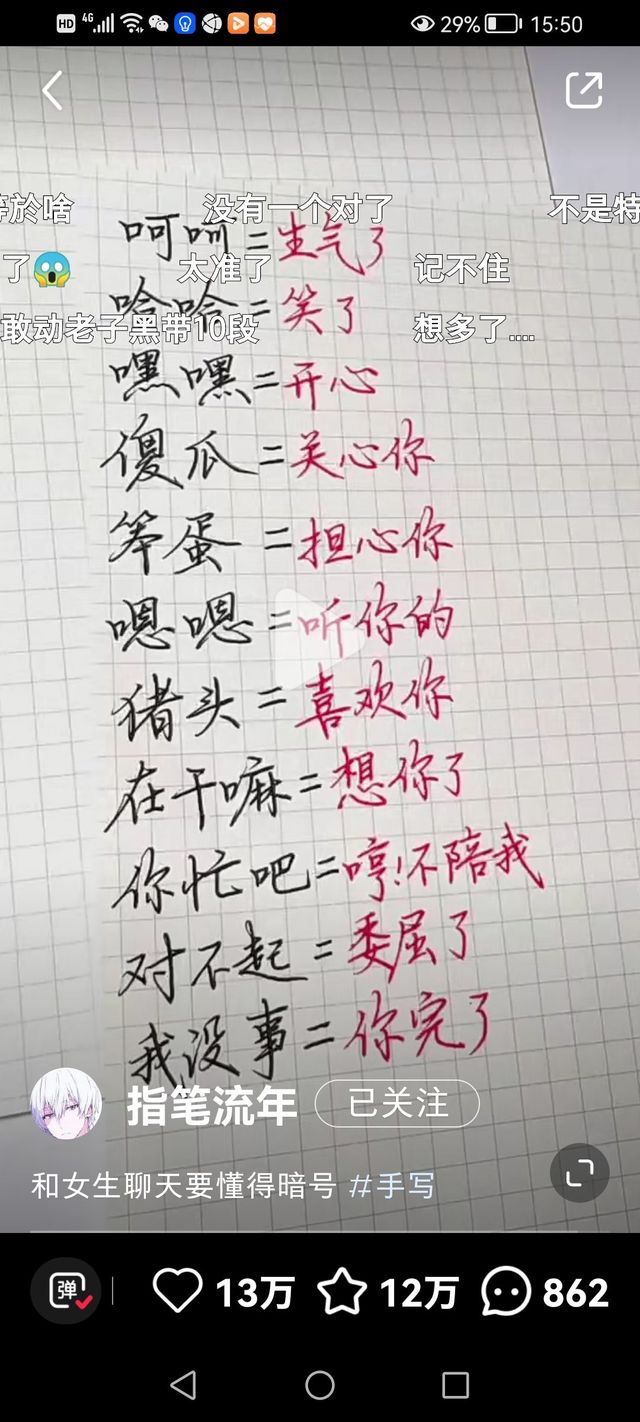 HD 4G 29% 15:50
等於啥 没有一个对了 不是特
呵呵=生气了
了😱 太准了 记不住
哈哈=笑了
敢动老子黑带10段 想多了....
嘿嘿=开心
傻瓜=关心你
笨蛋=担心你
嗯嗯=听你的
猪头=喜欢你
在干嘛=想你了
你忙吧=哼!不陪我
对不起=委屈了
我没事=你完了
指笔流年 已关注
和女生聊天要懂得暗号 #手写
弹 13万 12万 862